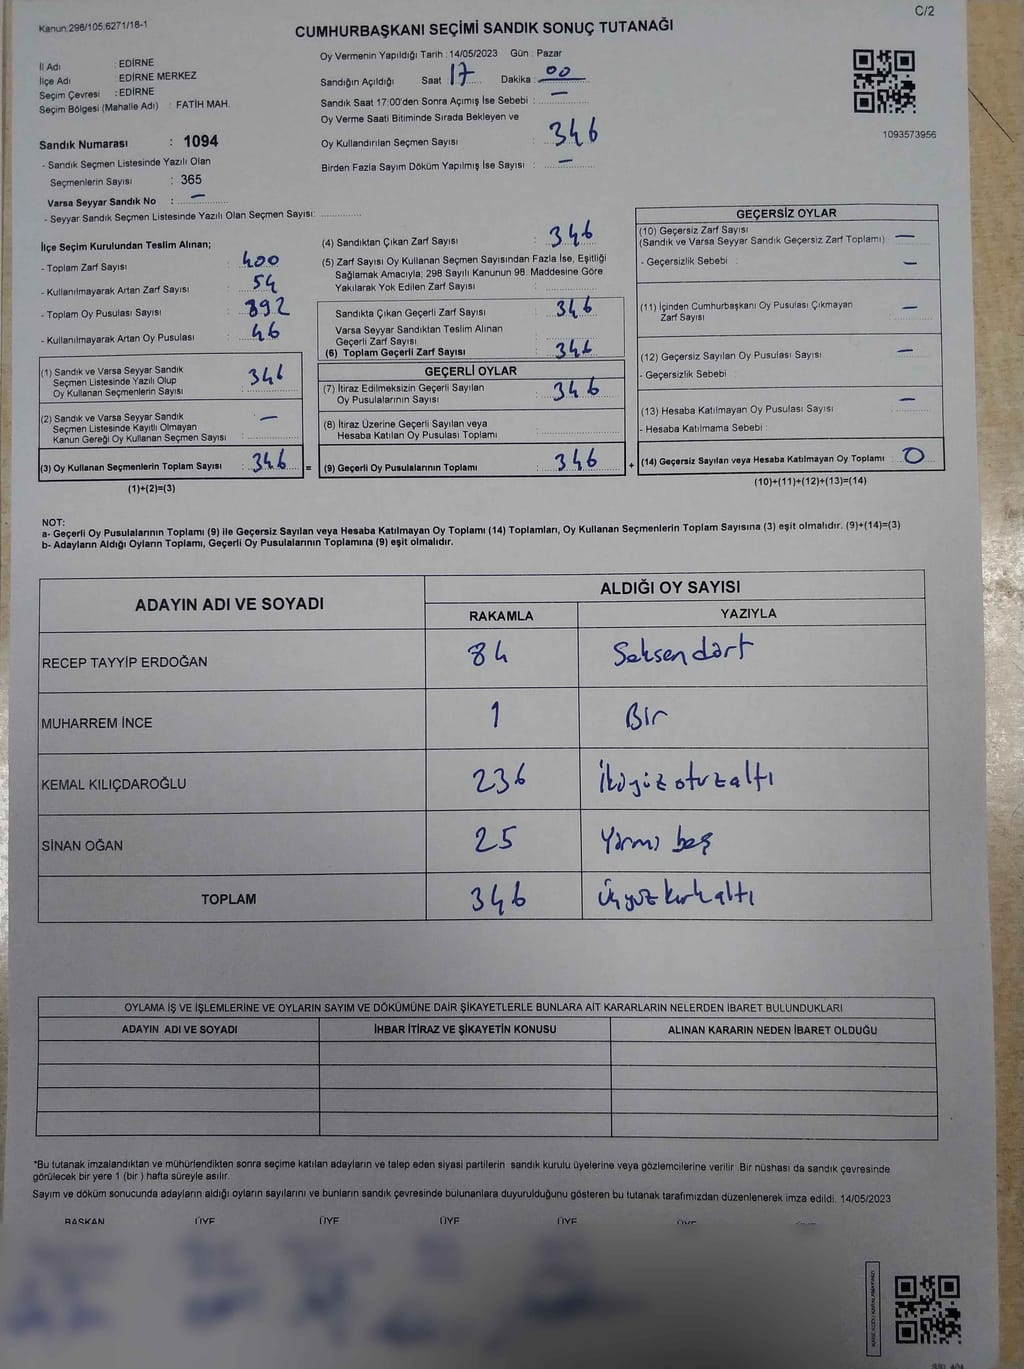 Kanun:298/105;6271/18-1
C/2
CUMHURBAŞKANI SEÇİMİ SANDIK SONUÇ TUTANAĞI
İl Adı : EDİRNE
İlçe Adı : EDİRNE MERKEZ
Seçim Çevresi : EDİRNE
Seçim Bölgesi (Mahalle Adı) : FATİH MAH.
Sandık Numarası : 1094
- Sandık Seçmen Listesinde Yazılı Olan
Seçmenlerin Sayısı : 365
Varsa Seyyar Sandık No : —
- Seyyar Sandık Seçmen Listesinde Yazılı Olan Seçmen Sayısı:
Oy Vermenin Yapıldığı Tarih : 14/05/2023 Gün : Pazar
Sandığın Açıldığı Saat 17 Dakika : 00
Sandık Saat 17:00'den Sonra Açımış İse Sebebi : —
Oy Verme Saati Bitiminde Sırada Bekleyen ve
Oy Kullandırılan Seçmen Sayısı : 346
Birden Fazla Sayım Döküm Yapılmış İse Sayısı : —
1093573956
İlçe Seçim Kurulundan Teslim Alınan;
- Toplam Zarf Sayısı : 400
- Kullanılmayarak Artan Zarf Sayısı : 54
- Toplam Oy Pusulası Sayısı : 392
- Kullanılmayarak Artan Oy Pusulası : 46
(1) Sandık ve Varsa Seyyar Sandık
Seçmen Listesinde Yazılı Olup
Oy Kullanan Seçmenlerin Sayısı : 346
(2) Sandık ve Varsa Seyyar Sandık
Seçmen Listesinde Kayıtlı Olmayan
Kanun Gereği Oy Kullanan Seçmen Sayısı : —
(3) Oy Kullanan Seçmenlerin Toplam Sayısı : 346 =
(1)+(2)=(3)
(4) Sandıktan Çıkan Zarf Sayısı : 346
(5) Zarf Sayısı Oy Kullanan Seçmen Sayısından Fazla İse, Eşitliği
Sağlamak Amacıyla; 298 Sayılı Kanunun 98. Maddesine Göre
Yakılarak Yok Edilen Zarf Sayısı :
Sandıkta Çıkan Geçerli Zarf Sayısı : 346
Varsa Seyyar Sandıktan Teslim Alınan
Geçerli Zarf Sayısı :
(6) Toplam Geçerli Zarf Sayısı : 346
GEÇERLİ OYLAR
(7) İtiraz Edilmeksizin Geçerli Sayılan
Oy Pusulalarının Sayısı : 346
(8) İtiraz Üzerine Geçerli Sayılan veya
Hesaba Katılan Oy Pusulası Toplamı :
(9) Geçerli Oy Pusulalarının Toplamı : 346 +
GEÇERSİZ OYLAR
(10) Geçersiz Zarf Sayısı
(Sandık ve Varsa Seyyar Sandık Geçersiz Zarf Toplamı) : —
- Geçersizlik Sebebi : —
(11) İçinden Cumhurbaşkanı Oy Pusulası Çıkmayan
Zarf Sayısı : —
(12) Geçersiz Sayılan Oy Pusulası Sayısı : —
- Geçersizlik Sebebi :
(13) Hesaba Katılmayan Oy Pusulası Sayısı : —
- Hesaba Katılmama Sebebi :
(14) Geçersiz Sayılan veya Hesaba Katılmayan Oy Toplamı : 0
(10)+(11)+(12)+(13)=(14)
NOT:
a- Geçerli Oy Pusulalarının Toplamı (9) ile Geçersiz Sayılan veya Hesaba Katılmayan Oy Toplamı (14) Toplamları, Oy Kullanan Seçmenlerin Toplam Sayısına (3) eşit olmalıdır. (9)+(14)=(3)
b- Adayların Aldığı Oyların Toplamı, Geçerli Oy Pusulalarının Toplamına (9) eşit olmalıdır.
ADAYIN ADI VE SOYADI ALDIĞI OY SAYISI
RAKAMLA YAZIYLA
RECEP TAYYİP ERDOĞAN 84 Seksen dört
MUHARREM İNCE 1 Bir
KEMAL KILIÇDAROĞLU 236 İkiyüz otuz altı
SİNAN OĞAN 25 Yirmi beş
TOPLAM 346 Üçyüz kırk altı
OYLAMA İŞ VE İŞLEMLERİNE VE OYLARIN SAYIM VE DÖKÜMÜNE DAİR ŞİKAYETLERLE BUNLARA AİT KARARLARIN NELERDEN İBARET BULUNDUKLARI
ADAYIN ADI VE SOYADI İHBAR İTİRAZ VE ŞİKAYETİN KONUSU ALINAN KARARIN NEDEN İBARET OLDUĞU
*Bu tutanak imzalandıktan ve mühürlendikten sonra seçime katılan adayların ve talep eden siyasi partilerin sandık kurulu üyelerine veya gözlemcilerine verilir. Bir nüshası da sandık çevresinde
görülecek bir yere 1 (bir ) hafta süreyle asılır.
Sayım ve döküm sonucunda adayların aldığı oyların sayılarını ve bunların sandık çevresinde bulunanlara duyurulduğunu gösteren bu tutanak tarafımızdan düzenlenerek imza edildi. 14/05/2023
BAŞKAN ÜYE ÜYE ÜYE ÜYE
KARE KODU KARALAMAYINIZ!